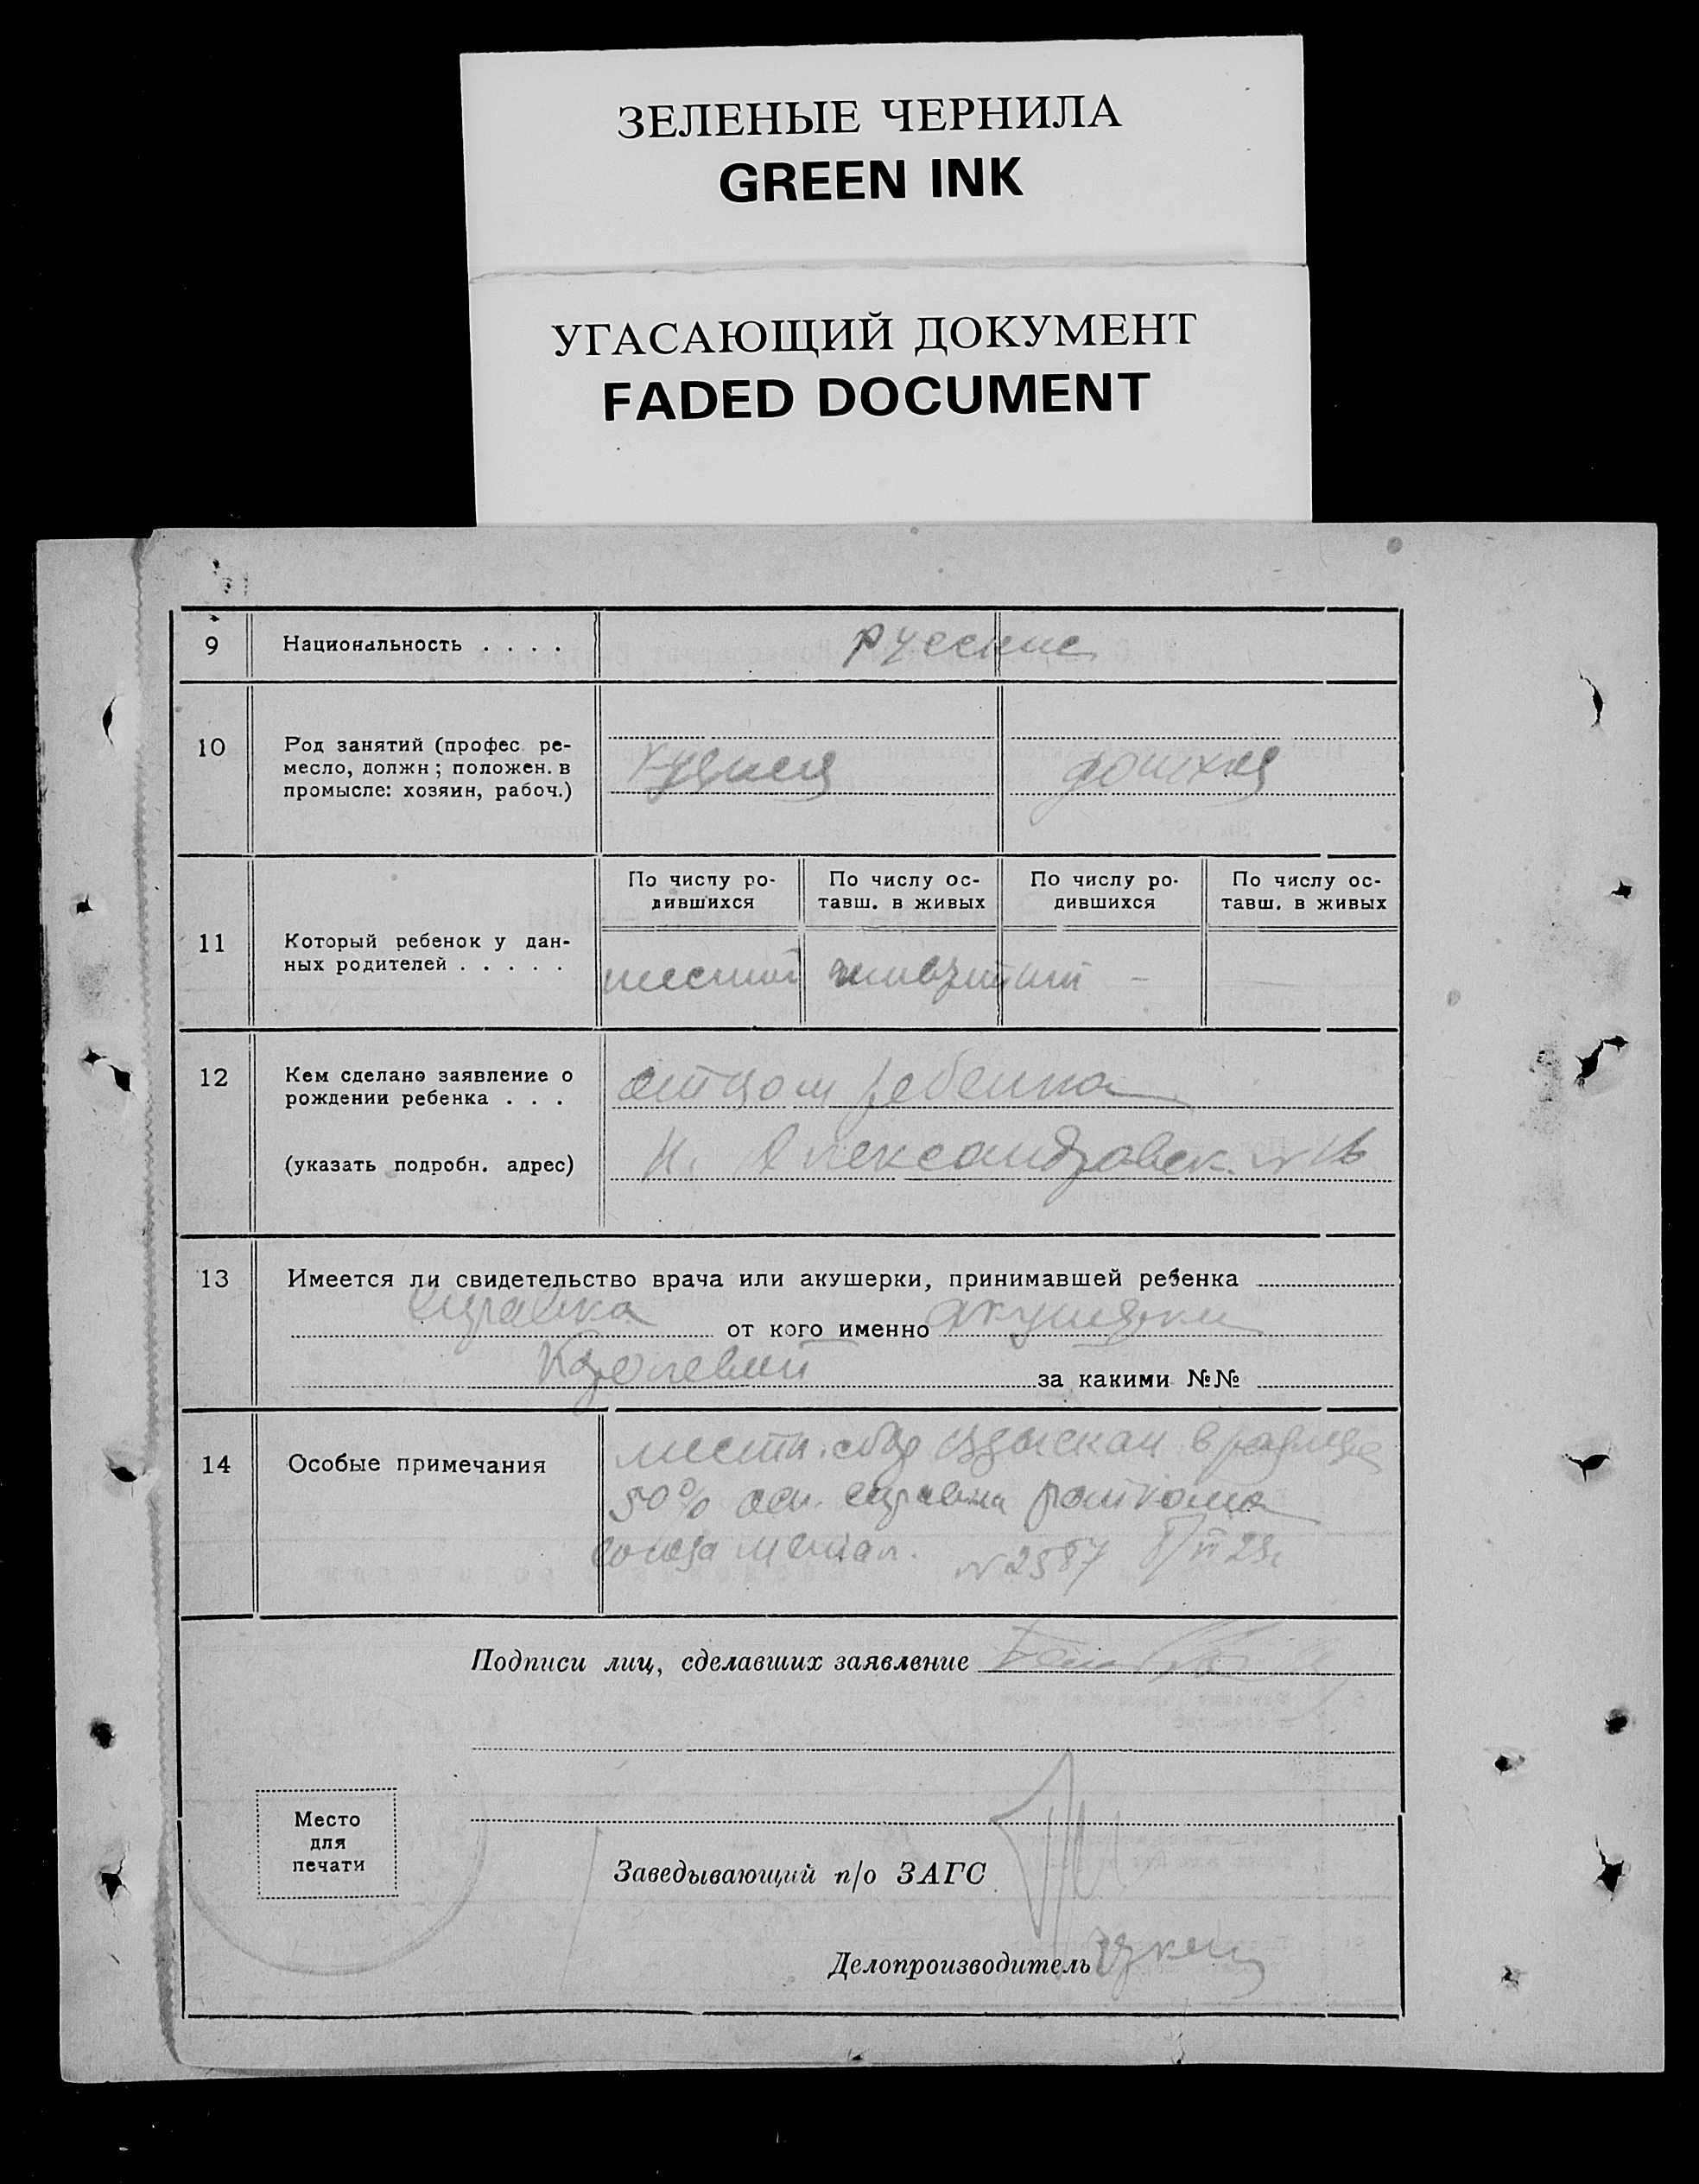 ЗЕЛЕНЫЕ ЧЕРНИЛА
GREEN INK
УГАСАЮЩИЙ ДОКУМЕНТ
FADED DOCUMENT
9 Национальность . . . . русские
10 Род занятий (профес. ре-
месло, должн; положен. в
промысле: хозяин, рабоч.)
По числу ро-
дившихся
По числу ос-
тавш. в живых
По числу ро-
дившихся
По числу ос-
тавш. в живых
11 Который ребенок у дан-
ных родителей . . . . .
шестой четвертый -
12 Кем сделано заявление о
рождении ребенка . . . отцом ребенка
(указать подробн. адрес) Н. Александровск. № 16
13 Имеется ли свидетельство врача или акушерки, принимавшей ребенка
справка от кого именно акушерки
Королевой за какими №№
14 Особые примечания местн. сбор взыскан в размере
50% осн. справки
союза метал. № 2587
Подписи лиц, сделавших заявление
Место
для
печати
Заведывающий п/о ЗАГС
Делопроизводитель